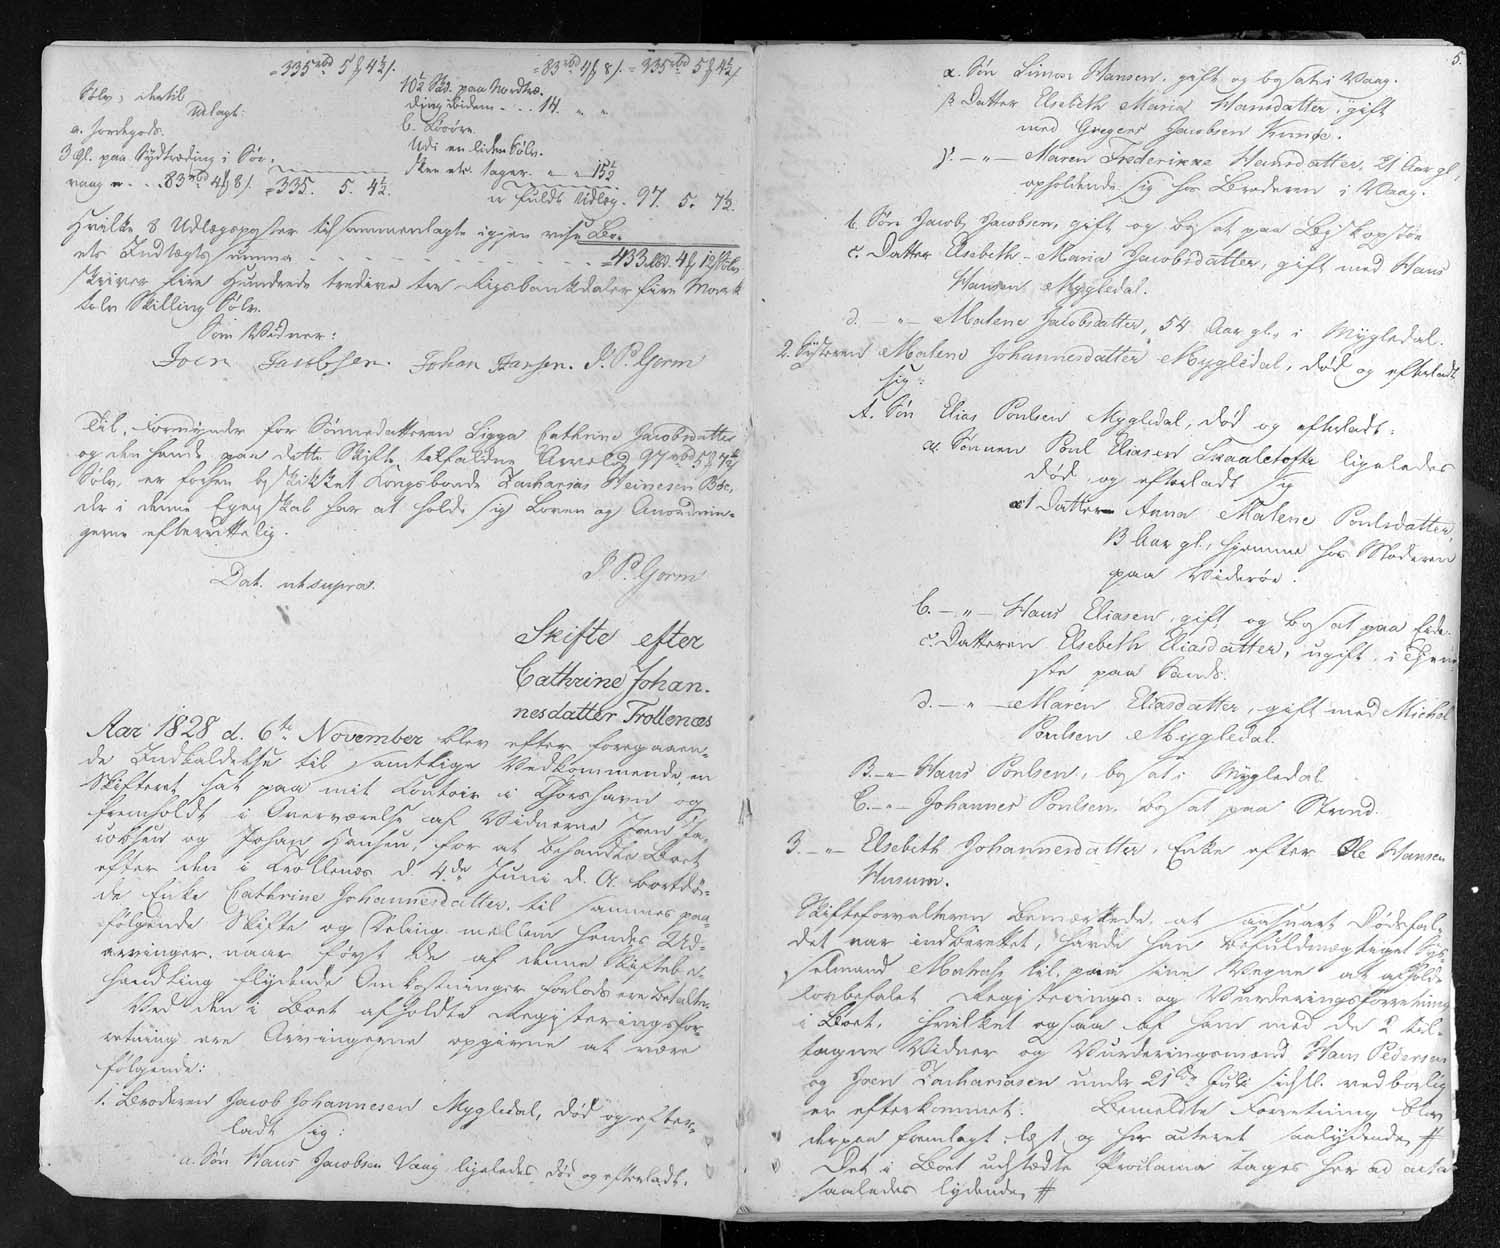 335 rbd 5 ₰ 4½ s.
83 rbd 4 ₰ 8 s. 335 rbd 5 ₰ 4½ s.
Sølv, dertil
Udlagt:
a. Jordegods.
3 Gl. paa Sydtræding i Sør-
vaag = . . 83 rbd 4 ₰ 8 s. = 335. 5. 4½.
10½ Skd. paa Nordtræ-
ding ibidem - . . 14. " "
b. Løsøre.
Udi en liden Sølv-
skee etc. tager. " " 15½
er fulds Udlæg. 97. 5. 7½.
Hvilke 8 Udlægsposter tilsammenlagte igjen vise Bo-
ets Indtægtssumma - - - - - - 433 rbd. 4 ₰ 12 s Sølv
skriver fire Hundrede tredive tre Rigsbankdaler fire Mark
tolv Skilling Sølv.
Som Vidner:
Joen Jacobsen. Johan Hansen. J. P. Gorm
Til Formynder for Sønnedatteren Ligga Cathrine Jacobsdatter
og den hende paa dette Skifte tilfaldne Arvelod 97 rbd 5 ₰ 7½
Sølv, er forhen beskikket Kongsbonde Zacharias Heinesen Bøe,
der i denne Egenskab har at holde sig Loven og Anordnin-
gerne efterrettelig.
Dat. ut supra.
J. P. Gorm
Skifte efter
Cathrine Johan-
nesdatter Trollenæs
Aar 1828 d. 6te November blev efter foregaaen-
de Indkaldelse til samtlige Vedkommende, en
Skifteret sat paa mit Contoir i Thorshavn og
fremholdt i Overværelse af Vidnerne Joen Ja-
cobsen og Johan Hansen, for at behandle Boet
efter den i Trollenæs d. 4de Juni d. A. bortdø-
de Enke Cathrine Johannesdatter, til sammes paa-
følgende Skifte og Deling mellem hendes Ud-
arvinger, naar først de af denne Skiftebe-
handling flydende Omkostninger forlods ere betalte.
Ved den i Boet afholdte Registeringsfor-
retning ere Arvingerne opgivne at være
følgende:
1. Broderen Jacob Johannesen Mygledal, død og efter-
ladt sig:
a. Søn Hans Jacobsen Vaag, ligeledes død og efterladt.
5.
α. Søn Simon Hansen, gift og bosat i Vaag.
β. Datter Elsebeth Maria Hansdatter, gift
med Gregers Jacobsen Kunøe.
γ. - " - Maren Frederikke Hansdatter, 21 Aar gl.,
opholdende sig hos Broderen i Vaag.
b. Søn Jacob Jacobsen, gift og bosat paa
c. Datter Elsebeth Maria Jacobsdatter, gift med Hans
Hansen Mygledal.
d. - " - Malene Jacobsdatter, 54 Aar gl., i Mygledal.
2. Systeren Malene Johannesdatter Mygledal, død og efterladt
sig:
A. Søn Elias Poulsen Mygledal, død og efterladt:
a. Sønnen Poul Eliasen Skaaletofte ligeledes
død og efterladt sig
α1 Datter Anna Malene Poulsdatter,
13 Aar gl., hjemme hos Moderen
paa Viderøe.
b. - " - Hans Eliasen, gift og bosat paa Eide.
c. Datteren Elsebeth Eliasdatter, ugift, i Tjene-
ste paa Sands.
d. - " - Maren Eliasdatter, gift med Michel
Poulsen Mygledal.
B. - " - Hans Poulsen, bosat i Mygledal
C. - " - Johannes Poulsen bosat paa Strend.
3. - " - Elsebeth Johannesdatter, Enke efter Ole Hansen
Husum.
Skifteforvalteren bemærkede, at saasnart Dødsfal-
det var indberettet, havde han befuldmægtiget Sys-
selmand Matras til paa sine Vegne at afholde
lovbefalet Registerings- og Vurderingsforretning
i Boet, hvilket ogsaa af ham med de 2 til-
tagne Vidner og Vurderingsmænd Hans Pedersen
og Joen Zachariasen under 21de Juli sidstl. vedborlig
er efterkommet. Bemeldte Forretning blev
derpaa fremlagt, læst og her acteret saalydende #
Det i Boet udstædte Proclama tages her ad acta
saaledes lydende #